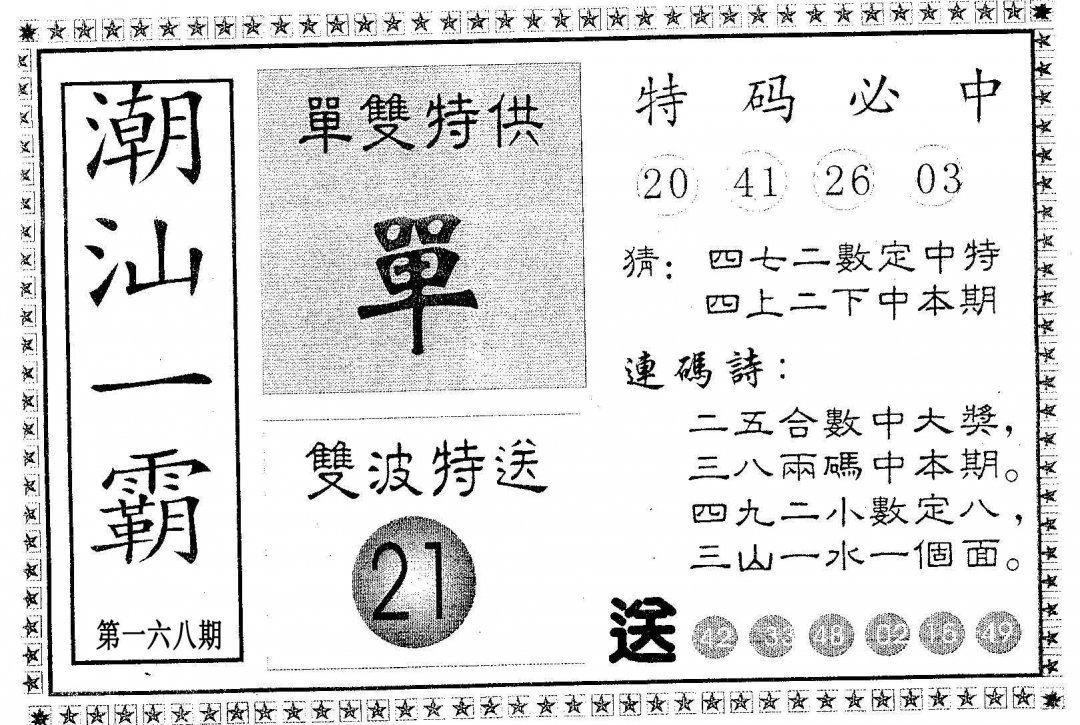 潮汕一霸
第一六八期
單雙特供
單
雙波特送
21
特码必中
20 41 26 03
猜：四七二數定中特
四上二下中本期
連碼詩：
二五合數中大獎，
三八兩碼中本期。
四九二小數定八，
三山一水一個面。
送 42 33 48 02 16 49